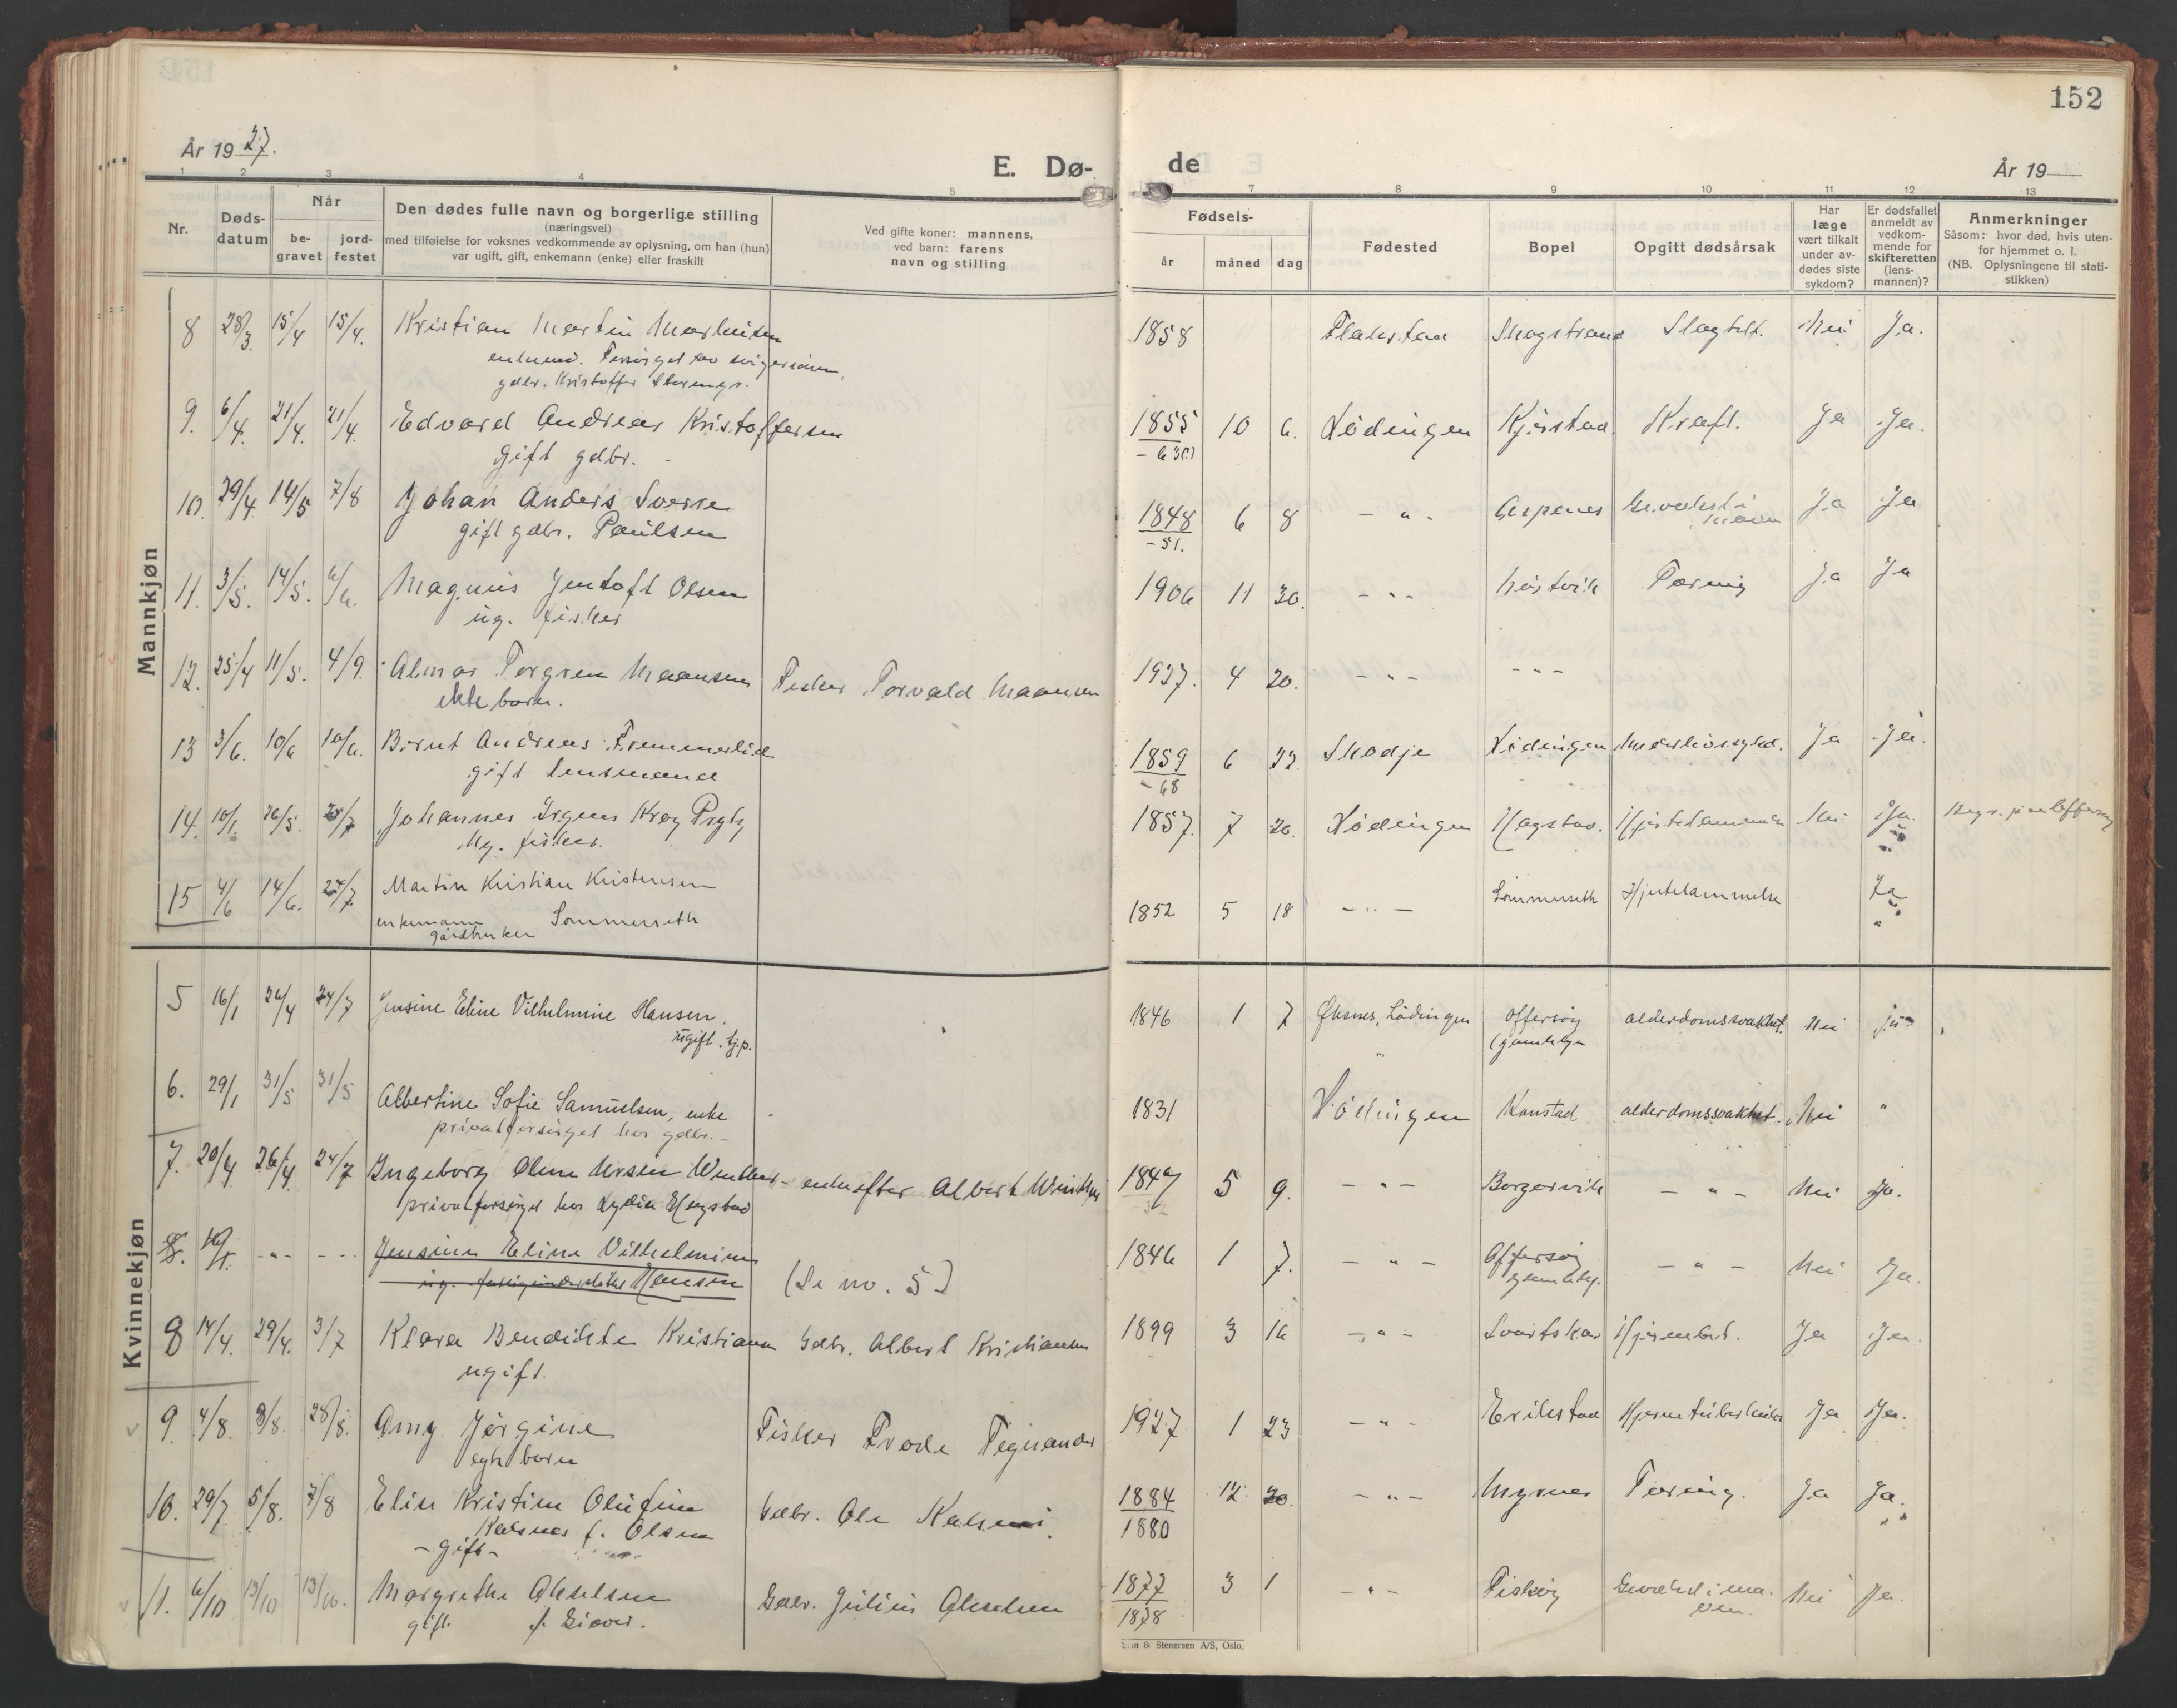 152
År 1927.
E. Dø-
de
År 19
1 2 3 4 5 7 8 9 10 11 12 13
Nr.
Døds-
datum
Når
be-
gravet
jord-
festet
Den dødes fulle navn og borgerlige stilling
(næringsvei)
med tilføielse for voksnes vedkommende av oplysning, om han (hun)
var ugift, gift, enkemann (enke) eller fraskilt
Ved gifte koner: mannens,
ved barn: farens
navn og stilling
Fødsels-
år
måned
dag
Fødested
Bopel
Opgitt dødsårsak
Har
læge
vært tilkalt
under av-
dødes siste
sykdom?
Er dødsfallet
anmeldt av
vedkom-
mende for
skifteretten
(lens-
mannen)?
Anmerkninger
Såsom: hvor død, hvis uten-
for hjemmet o. l.
(NB. Oplysningene til stati-
stikken)
Mannkjøn
8 28/3. 15/4 15/4. Kristian Martin 1858 Flakstad Skogstrand Slagtilf. Nei Ja.
enkem. Forsørget av svigersønn,
gdbr. Kristoffer
9. 6/4. 21/4. 21/4. Edvard Andreas Kristoffersen 1855 10 6. Lødingen Kjørstad Kreft. Ja Ja.
gift gdbr.
10. 29/4 14/5 7/8 Johan Anders Sverre 1848 6 8 - " - Aspenes Ja Ja
gift gdbr. Paulsen
-51.
11. 3/5. 14/5. 6/6. Magnus Jentoft Olsen 1906 11 30. - " - Tæring Ja Ja
ug. fisker
12. 25/4 11/5. 4/9. Almar Torgren Maansen Fisker Torvald Maansen 1927. 4 20. - " - - " -
ekte barn.
13 3/6. 10/6 10/6. Bernt Andreas Fremmerlid 1859 6 22 Skodje Lødingen Ja Ja.
gift lensmand
-68
14. 10/1. 26/5. 28/7 Johannes Irgens Krog 1857. 7 20. Lødingen Hagstad. Hjertelammelse Nei Ja.
Ug. fisker.
15 4/6 14/6. 27/7. Martin Kristian Kristensen 1852 5 18 - " - Sommerseth Hjertelammelse Ja
enkemann Sommerseth
gårdbruker
Kvinnekjøn
5 16/1 26/4 24/7 Jensine Eline Vilhelmine Hansen, 1846 1 7 Øksnes, Lødingen Offersøy alderdomssvakhet. Nei ja
ugift. tj.p.
gamlehjem
6. 29/1 31/5 31/5 Albertine Sofie Samuelsen, enke 1831 Lødingen Kanstad alderdomssvakhet. Nei "
privatforsørget hos gdbr. -
7. 20/4 26/4. 24/7 Ingeborg Oline Ursin Winther - enke efter Albert Winther 1847 5 9. - " - Borgervik - " - Nei Ja.
privatforsørget hos Lydia Hagstad
8. 16/1. - " - - " - Jensine Eline Vilhelmine 1846 1 7. - " - Offersøy - " - Nei Ja.
ug. Hansen (Se no. 5)
gamlehj.
8 14/4. 29/4. 3/7 Klara Bendikte Kristiansen Gdbr. Albert Kristiansen 1899 3 16 - " - Svartskar Hjernebet. Ja Ja.
ugift.
9. 4/8. 9/8. 28/8. Amy Jørgine Fisker Frode Tegnander 1927 1 23 - " - Erikstad Hjernetuberkulose Ja Ja.
egte barn
10. 29/7. 5/8. 7/8 Elise Kristine Olufine Gdbr. Ole Kalsnes. 1884 12 20. - " - Myrnes Tæring. Ja Ja.
Kalsnes f. Olsen 1880
- gift -
11. 6/10 13/10 13/10. Margrethe Akselsen Gdbr. Julius Akselsen 1877 3 1 - " - Fiskøy Gevækst i ma- Nei Ja.
gift. f. Giæver. 1878 ven.
& Stenersen A/S, Oslo.